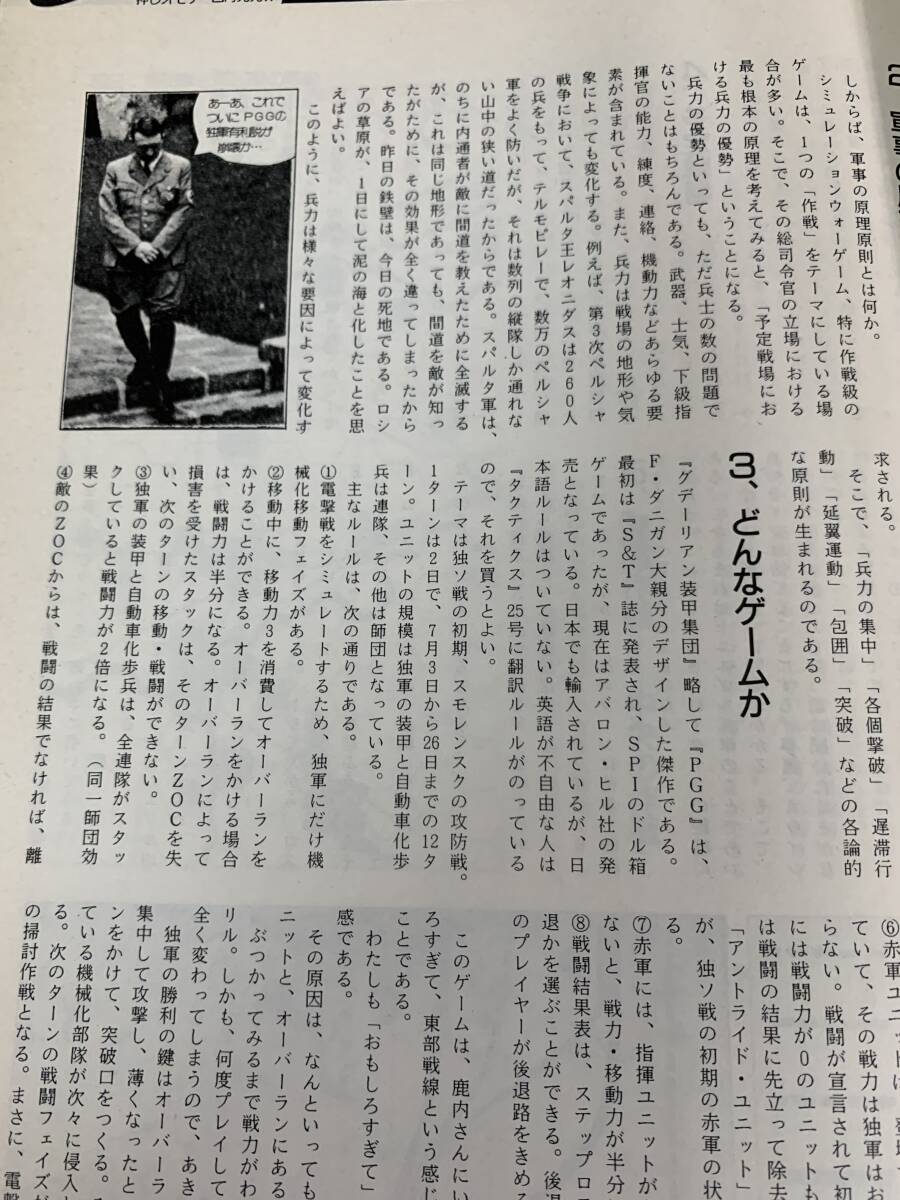 しからば、軍事の原理原則とは何か。
シミュレーションウォーゲーム、特に作戦級の
ゲームは、1つの「作戦」をテーマにしている場
合が多い。そこで、その総司令官の立場における
最も根本の原理を考えてみると、「予定戦場にお
ける兵力の優勢」ということになる。
兵力の優勢といっても、ただ兵士の数の問題で
ないことはもちろんである。武器、士気、下級指
揮官の能力、練度、連絡、機動力などあらゆる要
素が含まれている。また、兵力は戦場の地形や気
象によっても変化する。例えば、第3次ペルシャ
戦争において、スパルタ王レオニダスは260人
の兵をもって、テルモピレーで、数万のペルシャ
軍をよく防いだが、それは数列の縦隊しか通れな
い山中の狭い道だったからである。スパルタ軍は、
のちに内通者が敵に間道を教えたために全滅する
が、これは同じ地形であっても、間道を敵が知っ
たがために、その効果が全く違ってしまったから
である。昨日の鉄壁は、今日の死地である。ロシ
アの草原が、1日にして泥の海と化したことを思
えばよい。
このように、兵力は様々な要因によって変化す
あーあ、これで
ついにPGGの
独軍有利説が
崩壊か…
求される。
そこで、「兵力の集中」「各個撃破」「遅滞行
動」「延翼運動」「包囲」「突破」などの各論的
な原則が生まれるのである。
3、どんなゲームか
『グデーリアン装甲集団』略して『PGG』は、
F・ダニガン大親分のデザインした傑作である。
最初は『S&T』誌に発表され、SPIのドル箱
ゲームであったが、現在はアバロン・ヒル社の発
売となっている。日本でも輸入されているが、日
本語ルールはついていない。英語が不自由な人は
『タクティクス』25号に翻訳ルールがのっている
ので、それを買うとよい。
テーマは独ソ戦の初期、スモレンスクの攻防戦。
1ターンは2日で、7月3日から26日までの12タ
ーン。ユニットの規模は独軍の装甲と自動車化歩
兵は連隊、その他は師団となっている。
主なルールは、次の通りである。
①電撃戦をシミュレートするため、独軍にだけ機
械化移動フェイズがある。
②移動中に、移動力3を消費してオーバーランを
かけることができる。オーバーランをかける場合
は、戦闘力は半分になる。オーバーランによって
損害を受けたスタックは、そのターンZOCを失
い、次のターンの移動・戦闘ができない。
③独軍の装甲と自動車化歩兵は、全連隊がスタッ
クしていると戦闘力が2倍になる。（同一師団効
果）
④敵のZOCからは、戦闘の結果でなければ、離
ていて、その戦力は独軍はお
らない。戦闘が宣言されて初
には戦闘力が0のユニットも
は戦闘の結果に先立って除去
「アントライド・ユニット」
が、独ソ戦の初期の赤軍の状
る。
⑦赤軍には、指揮ユニットが
ないと、戦力・移動力が半分
⑧戦闘結果表は、ステップロ
退かを選ぶことができる。後退
のプレイヤーが後退路をきめる
このゲームは、鹿内さんにい
ろすぎて、東部戦線という感じ
ことである。
わたしも「おもしろすぎて」
感である。
その原因は、なんといっても
ニットと、オーバーランにある
ぶつかってみるまで戦力がわ
リル。しかも、何度プレイして
全く変わってしまうので、あき
独軍の勝利の鍵はオーバーラ
集中して攻撃し、薄くなったと
ンをかけて、突破口をつくる。
ている機械化部隊が次々に侵入
る。次のターンの戦闘フェイズが
の掃討作戦となる。まさに、電撃